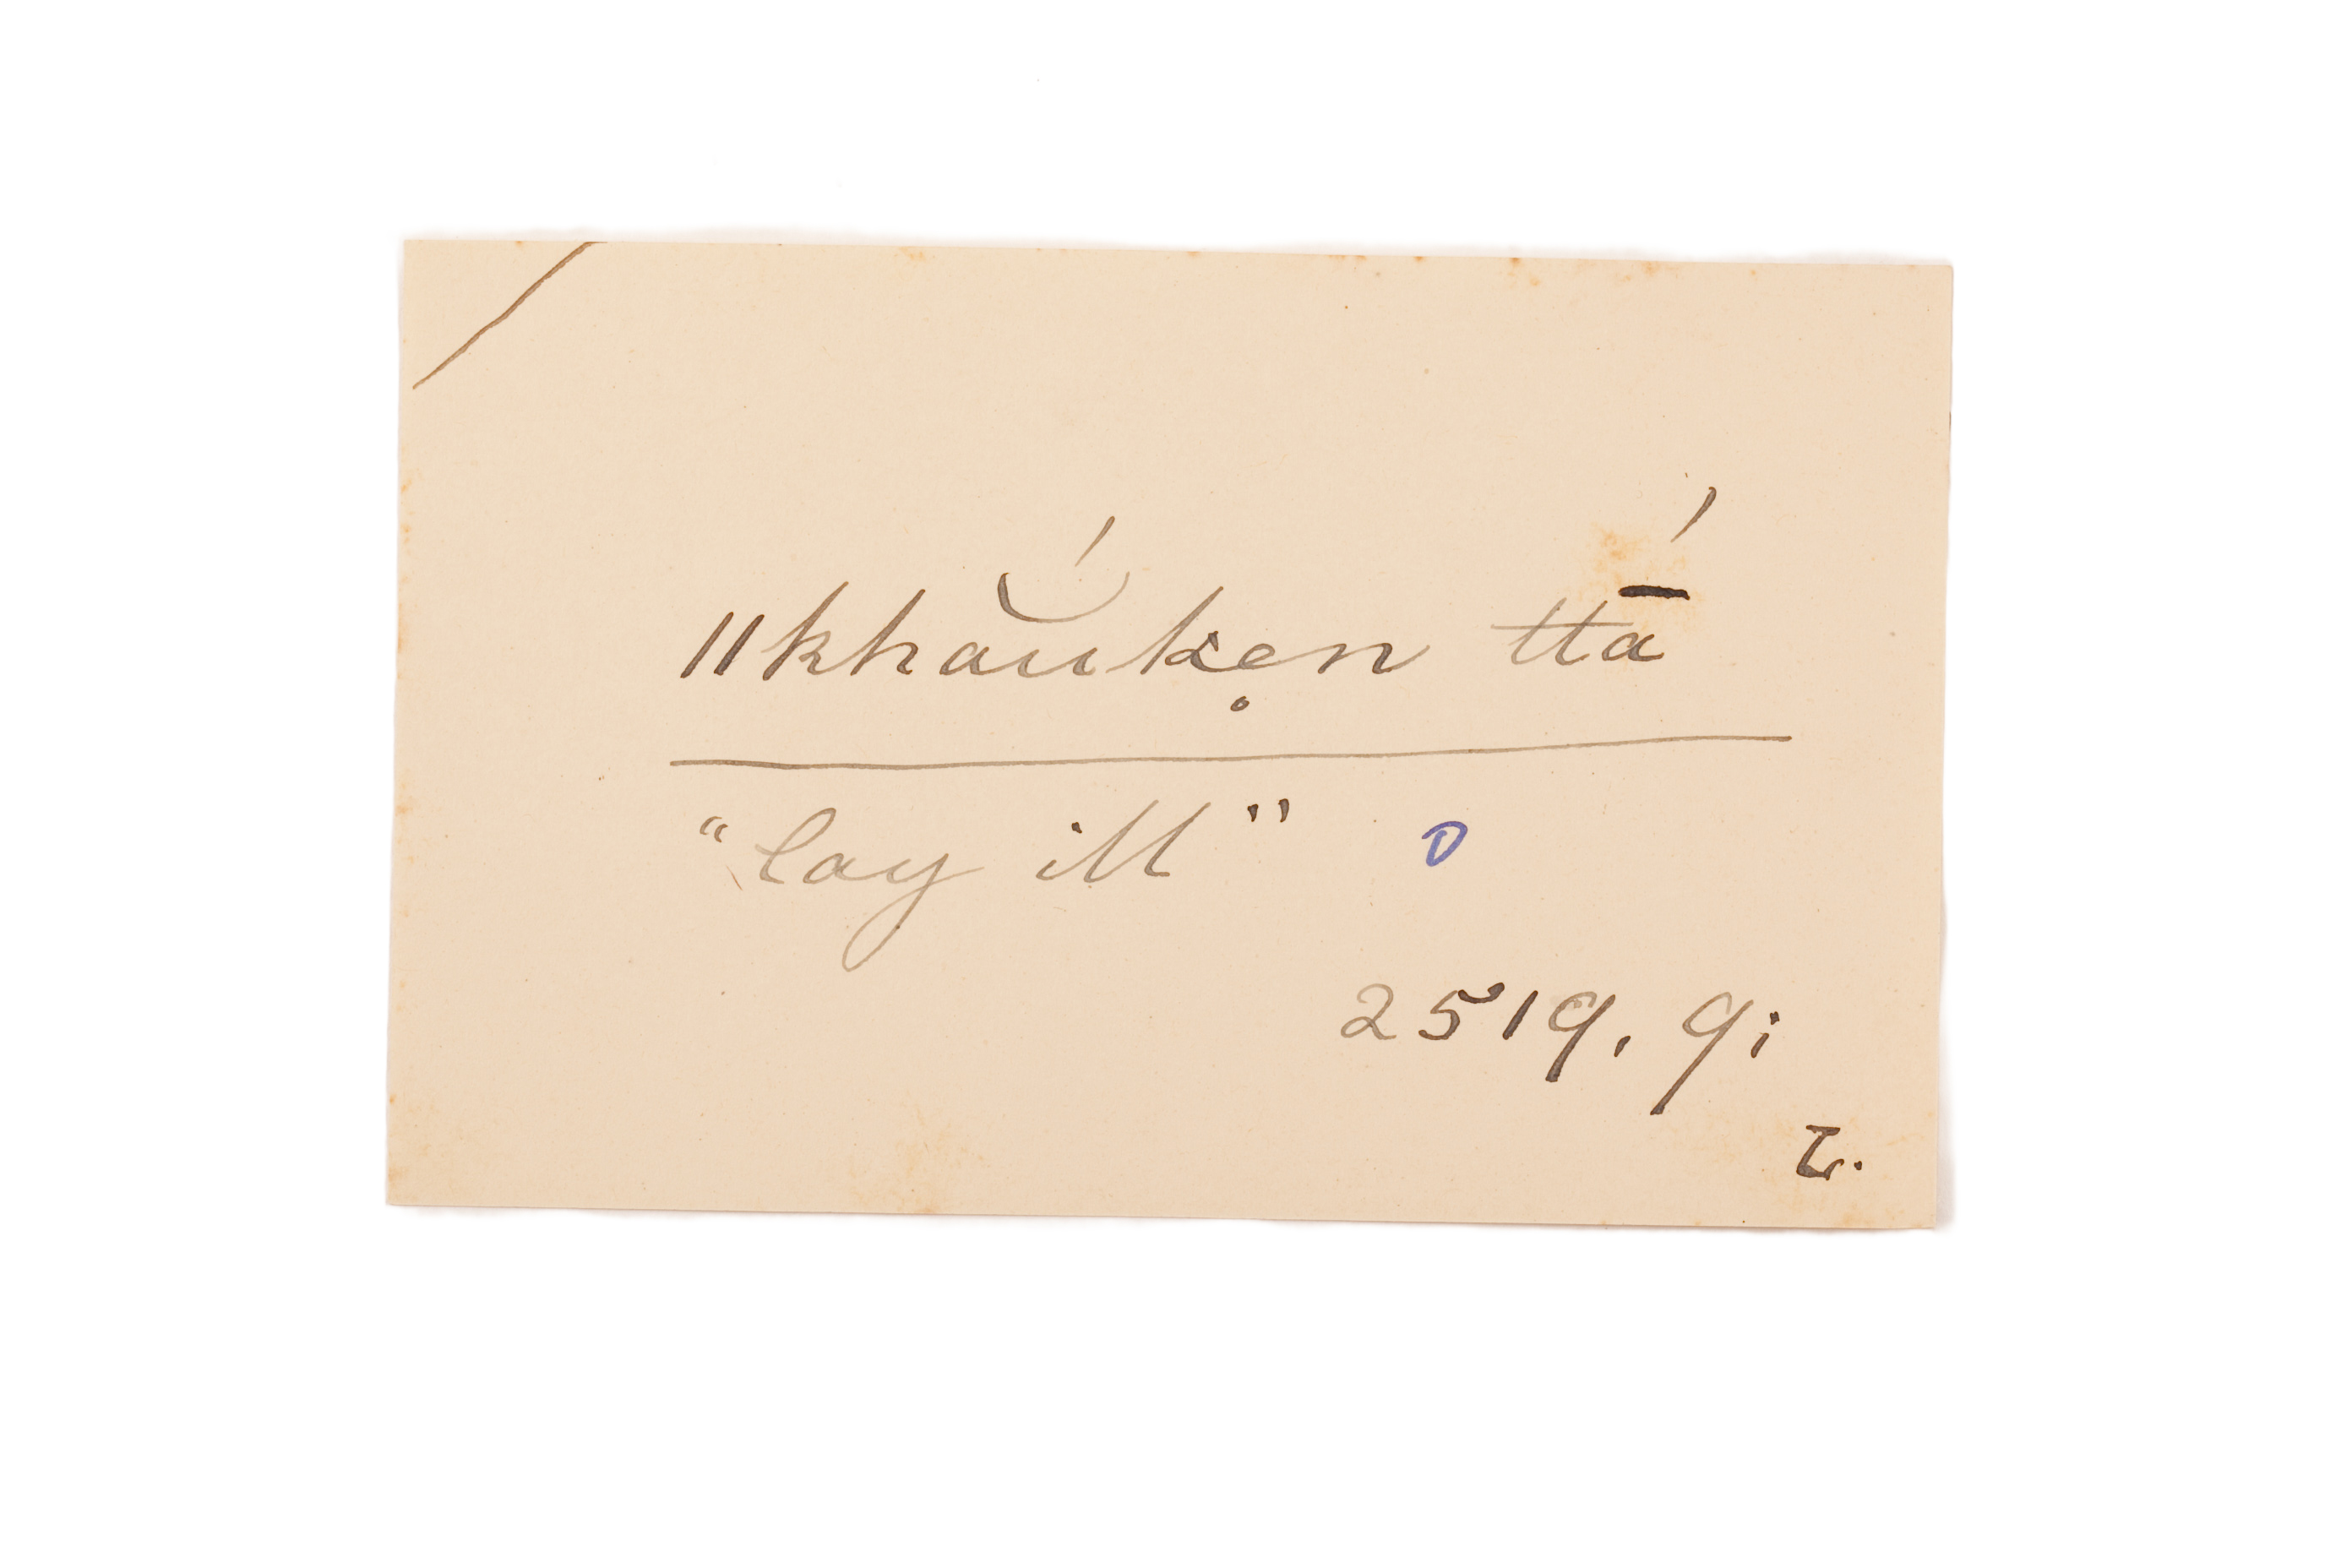 ǁkhaŭ́ken̥ ttā́
"lay ill" D
2519. 9;
L.